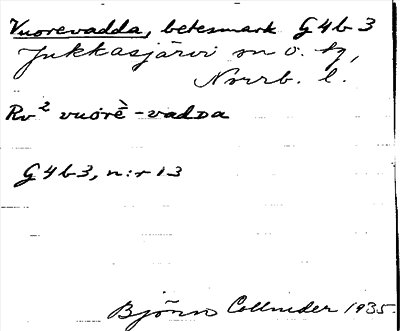 Vuorevadda, betesmark G4b3
Jukkasjärvi sn o. tg,
Norrb. l.
Rv² vuorè̄-vaddᴀ
G4b3, n:r 13
Björn Collinder 1935.